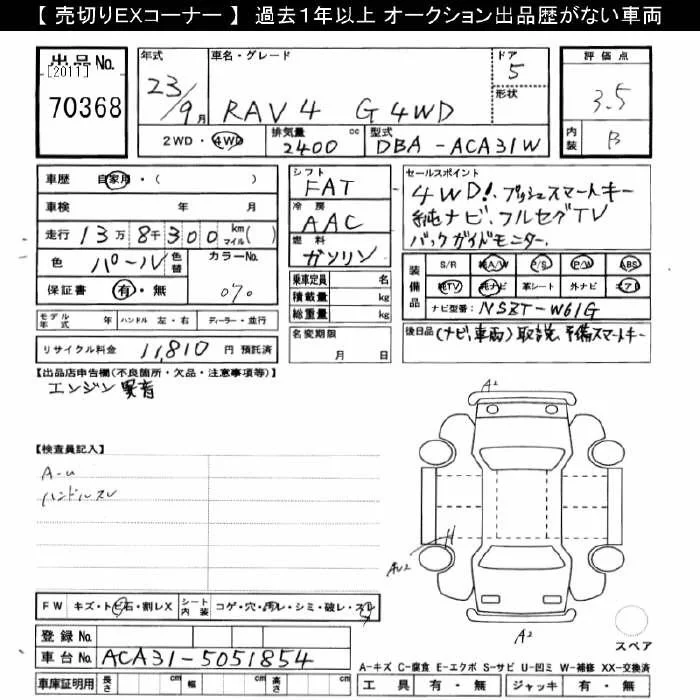 【 売切りEXコーナー 】 過去1年以上 オークション出品歴がない車両
出品No. [2011] 70368
年式 23/9月
車名・グレード RAV4 G 4WD
ドア 5
形状
評価点 3.5
内装 B
2WD・4WD 排気量 2400 cc 型式 DBA-ACA31W
車歴 自家用・( )
車検 年 月
走行 13万8千300 km マイル( )
色 パール 色替 カラーNo. 070
保証書 有・無
モデル年式 年 ハンドル 左・右 ディーラー・並行
リサイクル料金 11,810 円 預託済
シフト FAT
冷房 AAC
燃料 ガソリン
乗車定員 名
積載量 kg
総重量 kg
名変期限 月 日
セールスポイント
4WD!、プッシュスマートキー
純ナビ、フルセグTV
バックガイドモニター、
装備品 S/R 純A/W P/S P/W ABS
純TV 純ナビ 革シート 外ナビ エアB
ナビ型番: NSZT-W61G
後日品 (ナビ、車両)取説、予備スマートキー
【出品店申告欄(不良箇所・欠品・注意事項等)】
エンジン異音
【検査員記入】
A-u
ハンドルスレ
A2
H
AU2
A2
スペア
FW キズ・トビ石・割レX シート内装 コゲ・穴・汚レ・シミ・破レ・スレ
登録No.
車台No. ACA31-5051854
車庫証明用 長さ cm 幅 cm 高さ cm
A-キズ C-腐食 E-エクボ S-サビ U-凹ミ W-補修 XX-交換済
工具 有・無 ジャッキ 有・無